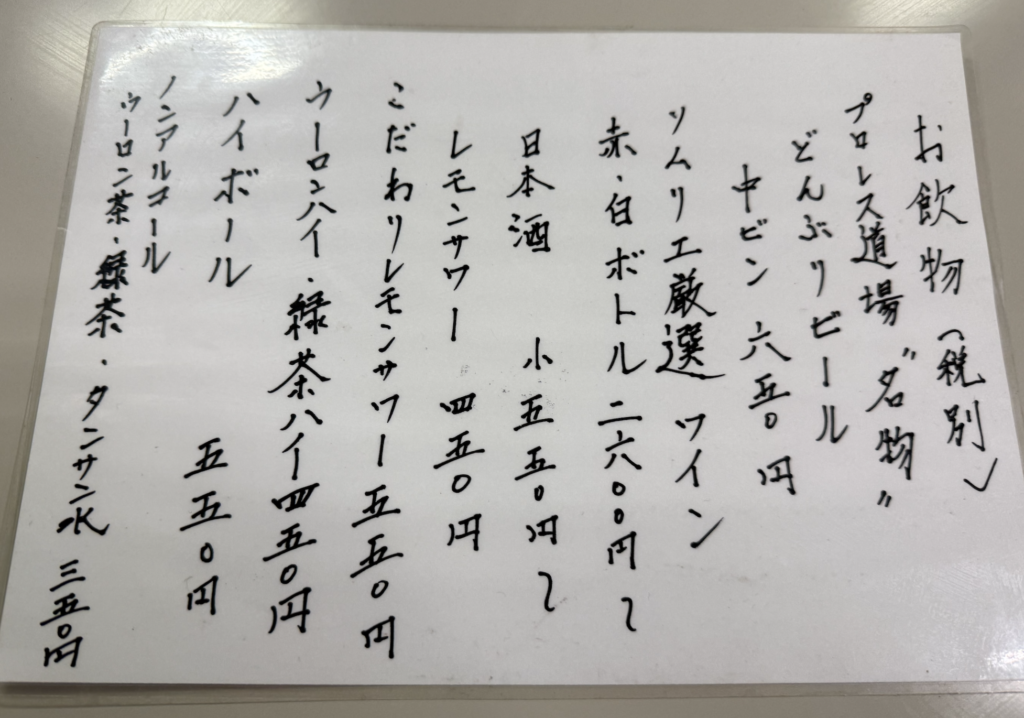 お飲物(税別)
プロレス道場"名物"
どんぶりビール
中ビン 六五〇円
ソムリエ厳選ワイン
赤・白ボトル二六〇〇円〜
日本酒 小五五〇円〜
レモンサワー 四五〇円
こだわりレモンサワー 五五〇円
ウーロンハイ・緑茶ハイ四五〇円
ハイボール 五五〇円
ノンアルコール
ウーロン茶・緑茶・タンサン水 三五〇円